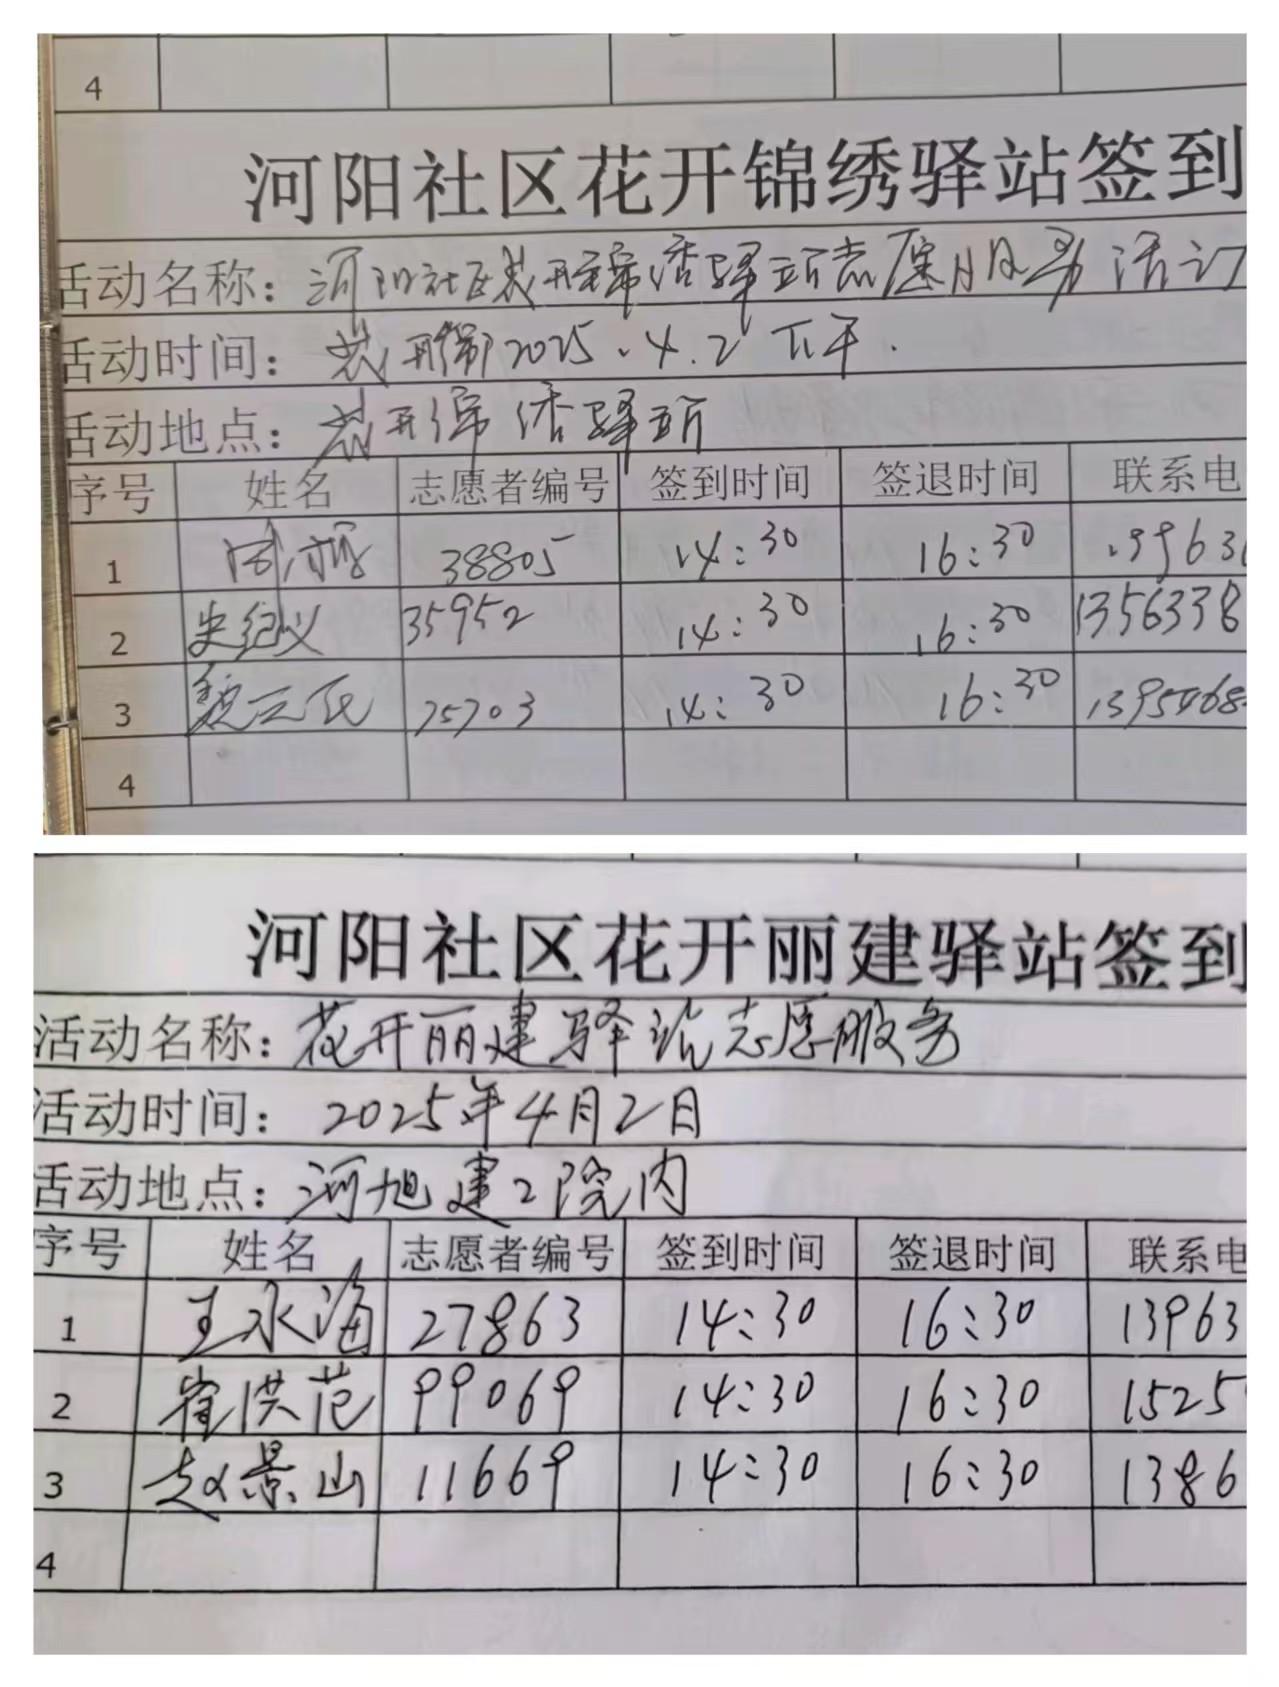 4
河阳社区花开锦绣驿站签到
活动名称：河阳社区花开锦绣驿站志愿服务活
活动时间：花开锦 2025.4.2 下午.
活动地点：花开锦绣驿站
序号 姓名 志愿者编号 签到时间 签退时间 联系电
1 38805 14:30 16:30
2 史纪义 35952 14:30 16:30 1356338
3 魏元民 14:30 16:30 1395468
4
河阳社区花开丽建驿站签到
活动名称：花开丽建驿站志愿服务
活动时间：2025年4月2日
活动地点：河旭建2院内
序号 姓名 志愿者编号 签到时间 签退时间 联系电
1 王永海 27863 14:30 16:30 13963
2 崔洪范 99069 14:30 16:30 1525
3 赵景山 11669 14:30 16:30 1386
4